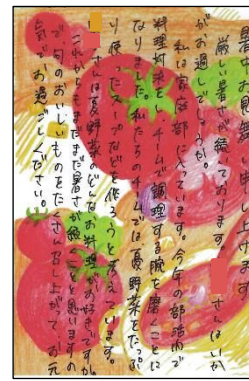 暑中お見舞い申し上げます
厳しい暑さが続いております。 さんはいか
がお過しでしょうか。
私は家庭部に入っています。今年の部活内で
料理対決をし、チームで調理する腕を磨くことに
なりました。私たちのチームでは夏野菜をたっぷ
り使たスープなどを作ろうと考えています。
さんは夏野菜のどんなお料理がお好きですか。
これからもまだまだ暑さが続くことと思いますの
で旬のおいしいものをたくさん召し上がって お元
気でお過ごしください。